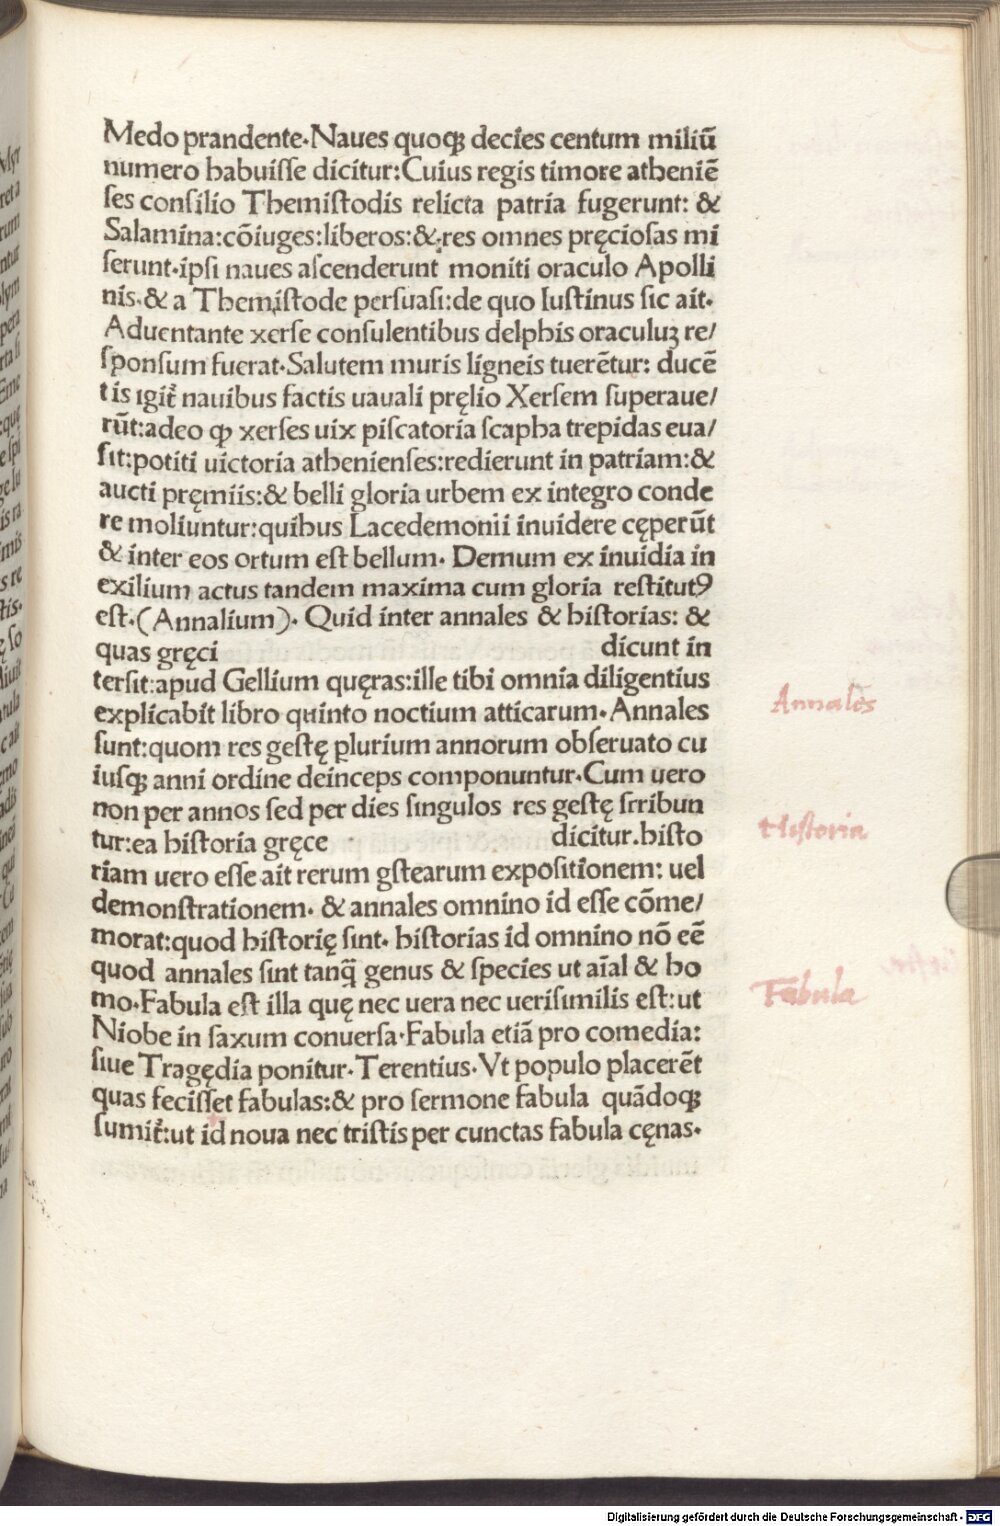 Medo prandente·Naues quoqꝫ decies centum miliū
numero habuisse dicitur:Cuius regis timore atheniē
ses consilio Themistodis relicta patria fugerunt: &
Salamina:cōiuges:liberos:&:res omnes pręciosas mi
serunt·ipsi naues ascenderunt moniti oraculo Apolli
nis.& a Themistode persuasi:de quo Iustinus sic ait·
Aduentante xerse consulentibus delphis oraculuꝫ re/
sponsum fuerat·Salutem muris ligneis tuerētur: ducē
tis igit̄ nauibus factis uauali pręlio Xersem superaue/
rūt:adeo ꝙ xerses uix piscatoria scapha trepidas eua/
sit:potiti uictoria athenienses:redierunt in patriam:&
aucti pręmiis:& belli gloria urbem ex integro conde
re moliuntur:quibus Lacedemonii inuidere cęperūt
& inter eos ortum est bellum· Demum ex inuidia in
exilium actus tandem maxima cum gloria restitutꝰ
est·(Annalium)· Quid inter annales & historias: &
quas gręci dicunt in
tersit:apud Gellium quęras:ille tibi omnia diligentius
explicabit libro quinto noctium atticarum·Annales
sunt:quom res gestę plurium annorum obseruato cu
iusqꝫ anni ordine deinceps componuntur·Cum uero
non per annos sed per dies singulos res gestę srribun
tur:ea historia gręce dicitur.histo
riam uero esse ait rerum gstearum expositionem: uel
demonstrationem· & annales omnino id esse cōme/
morat:quod historię sint· historias id omnino nō eē
quod annales sint tanq̄ genus & species ut aīal & ho
mo·Fabula est illa quę nec uera nec uerisimilis est:ut
Niobe in saxum conuersa·Fabula etiā pro comedia:
siue Tragędia ponitur·Terentius·Vt populo placerēt
quas fecisset fabulas:& pro sermone fabula quādoqꝫ
sumit̄:ut id noua nec tristis per cunctas fabula cęnas·
Annales
Historia
Fabula
Digitalisierung gefördert durch die Deutsche Forschungsgemeinschaft - DFG